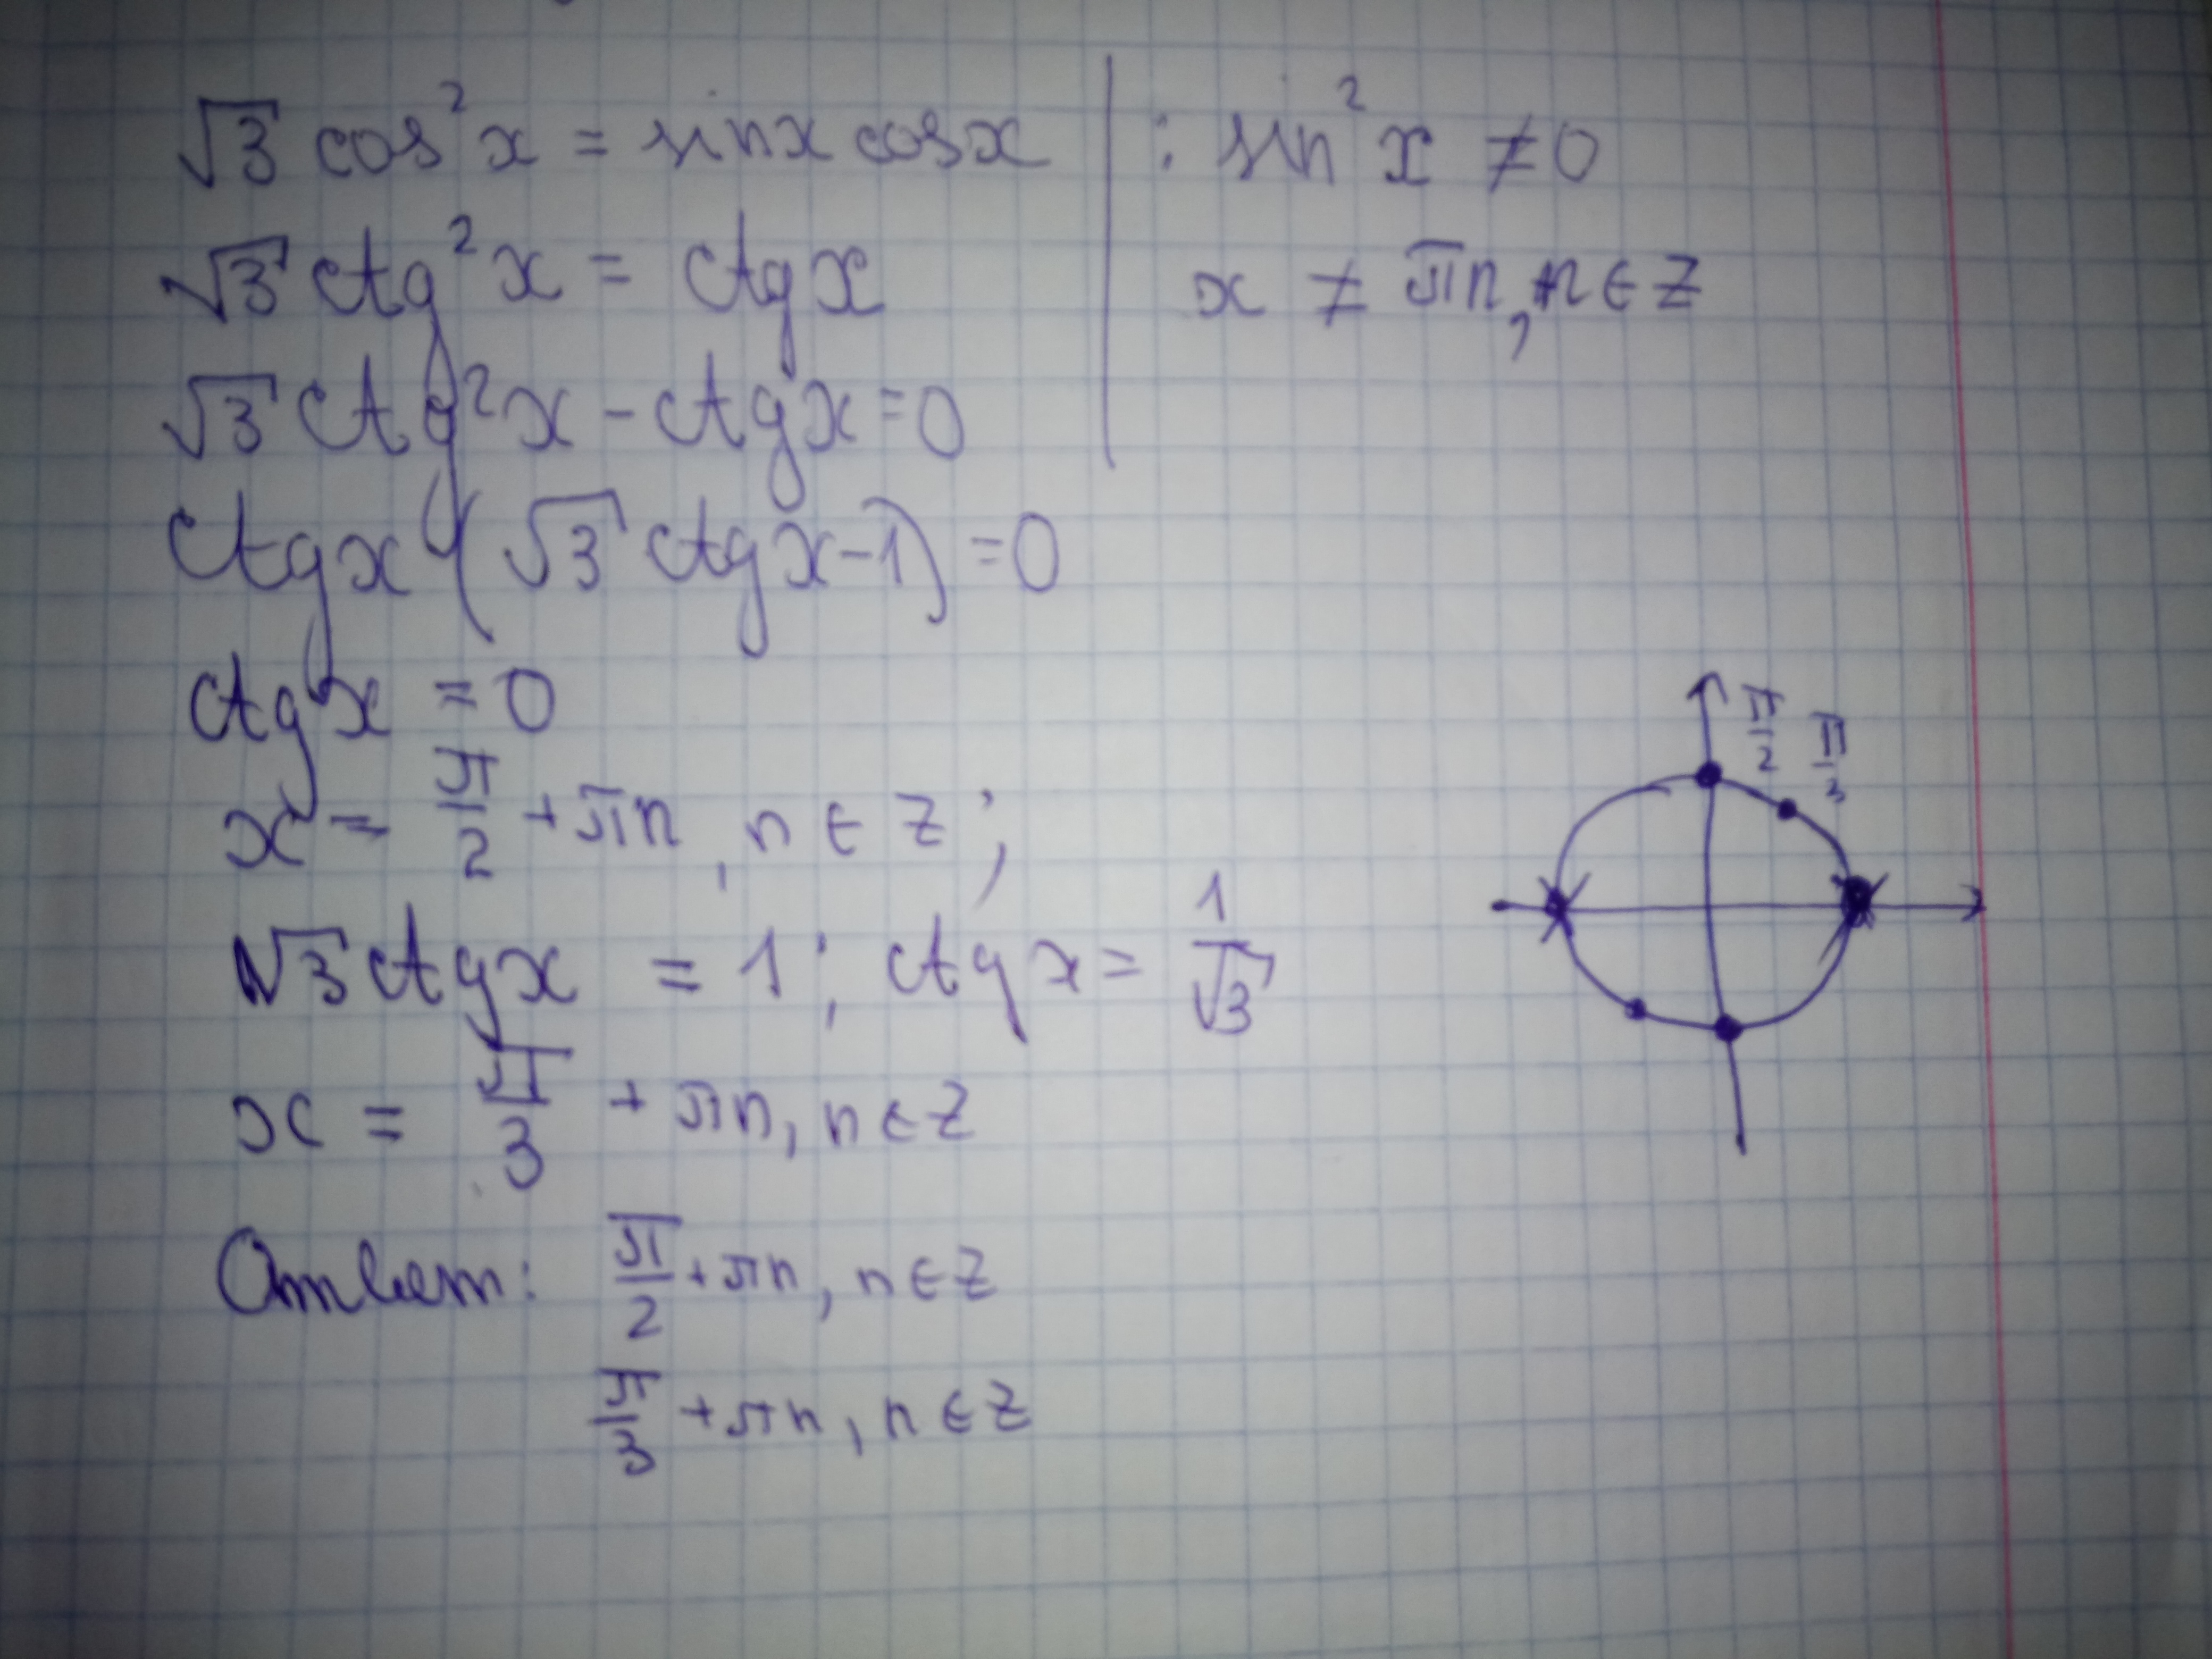 √3 cos²x = sinx cosx | : sin²x ≠ 0
√3 ctg²x = ctgx
x ≠ πn, n ∈ Z
√3 ctg²x - ctgx = 0
ctgx (√3 ctgx - 1) = 0
ctgx = 0
x = π/2 + πn, n ∈ Z;
√3 ctgx = 1; ctgx = 1/√3
x = π/3 + πn, n ∈ Z
Ответ: π/2 + πn, n ∈ Z
π/3 + πn, n ∈ Z
π/2
π/3